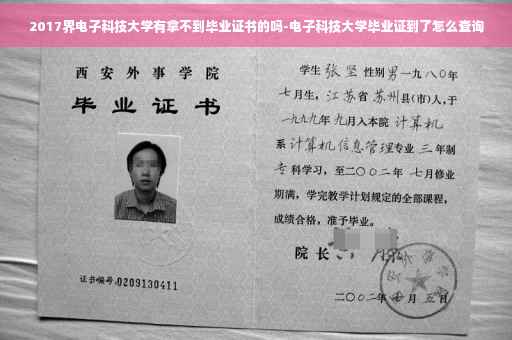 2017界电子科技大学有拿不到毕业证书的吗-电子科技大学毕业证到了怎么查询
西安外事学院
毕业证书
证书编号:0209130411
学生 张坚 性别男一九八〇年
七月生,江苏省苏州县(市)人,于
一九九九年九月入本院 计算机
系计算机信息管理专业 三年制
专科学习,至二〇〇二年七月修业
期满,学完教学计划规定的全部课程,
成绩合格,准予毕业。
院长
二〇〇二年 月五日